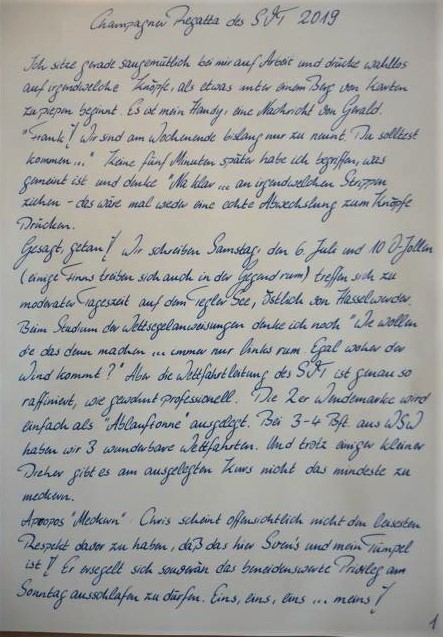 Champagner Regatta des SVT 2019
Ich sitze gerade saugemütlich bei mir auf Arbeit und drücke wahllos
auf irgendwelche Knöpfe, als etwas unter einem Berg von Karten
zu piepen beginnt. Es ist mein Handy, eine Nachricht von Gerald.
"Frank! Wir sind am Wochenende bislang nur zu neunt. Du solltest
kommen..." Keine fünf Minuten später habe ich begriffen, was
gemeint ist und denke "Na klar... an irgendwelchen Strippen
ziehen - das wäre mal wieder eine echte Abwechslung zum Knöpfe
Drücken.
Gesagt, getan! Wir schreiben Samstag, den 6. Juli und 10 O-Jollen
(einige Finns treiben sich auch in der Gegend rum) treffen sich zu
moderater Tageszeit auf dem Tegler See, östlich von Hasselwerder.
Beim Studium der Wettsegelanweisungen denke ich noch "Wie wollen
die das denn machen... immer nur links rum. Egal woher der
Wind kommt?" Aber die Wettfahrtleitung des SVT ist genau so
raffiniert, wie gewohnt professionell. Die 2er Wendemarke wird
einfach als "Ablauftonne" ausgelegt. Bei 3-4 Bft. aus WSW
haben wir 3 wunderbare Wettfahrten. Und trotz einiger kleiner
Dreher gibt es am ausgelegten Kurs nicht das mindeste zu
meckern.
Apropos "Meckern": Chris scheint offensichtlich nicht den leisesten
Respekt davor zu haben, daß das hier Sven's und mein Tümpel
ist! Er ersegelt sich souverän das beneidenswerte Privileg am
Sonntag ausschlafen zu dürfen. Eins, eins, eins... meins!
1